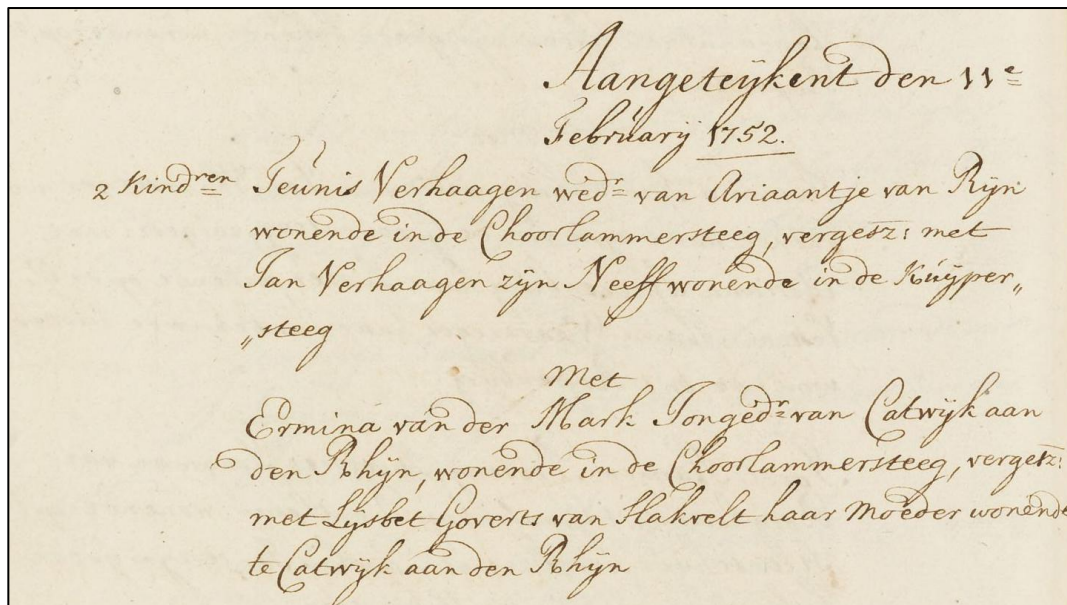 Aangeteÿkent den 11e
Februarÿ 1752.
2 Kindren Teunis Verhaagen wedr van Ariaantje van Rÿn
wonende in de Choorlammersteeg, vergesz: met
Jan Verhaagen zÿn Neeff wonende in de Kuÿper„
„steeg
Met
Ermina van der Mark Jongedr van Catwÿk aan
den Rhÿn, wonende in de Choorlammersteeg, vergesz:
met Lÿsbet Goverts van Slakvelt haar Moeder wonende
te Catwÿk aan den Rhÿn